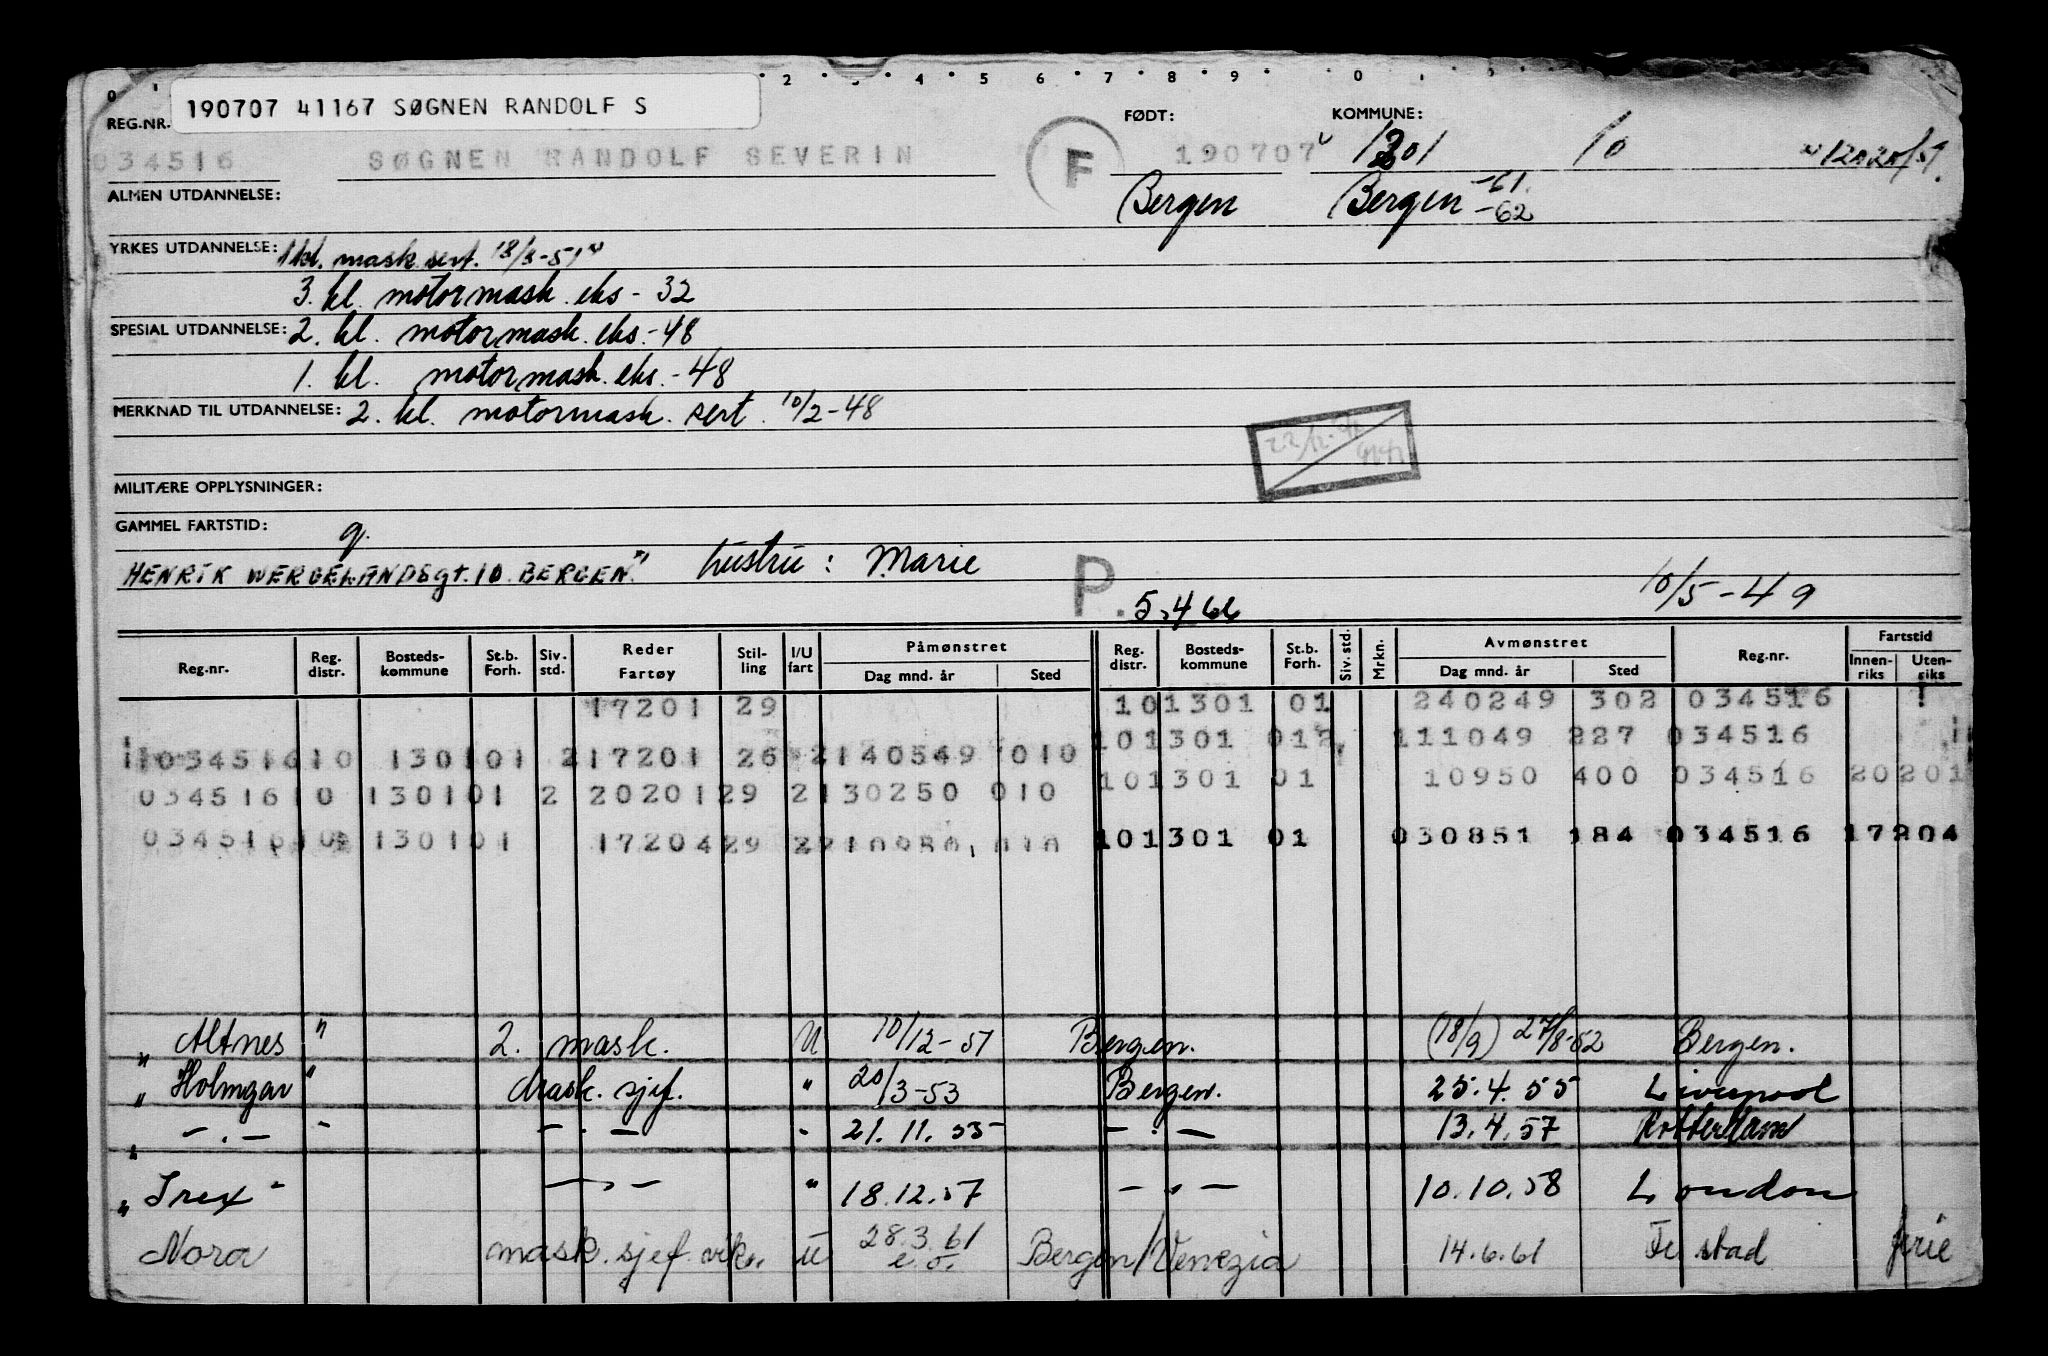 0 2 3 4 5 6 7 8 9 0
190707 41167 SØGNEN RANDOLF S
REG.NR. FØDT: KOMMUNE:
034516 SØGNEN RANDOLF SEVERIN F 190707 1301 10
ALMEN UTDANNELSE: Bergen Bergen -61.
-62
YRKES UTDANNELSE: 1 kl. mask. sert. 18/8-51
3. kl. motormask. eks - 32
SPESIAL UTDANNELSE: 2. kl. motormask. eks. - 48
1. kl. motormask. eks. - 48
MERKNAD TIL UTDANNELSE: 2. kl. motormask. sert. 10/2-48
22/12
MILITÆRE OPPLYSNINGER:
GAMMEL FARTSTID:
g.
HENRIK WERGELANDSgt. 10 BERGEN." hustru: Marie P. 10/5-49
5.466
Reg.nr. Reg. distr. Bosteds- kommune St.b. Forh. Siv. std. Reder Fartøy Stil- ling I/U fart Påmønstret Dag mnd. år Sted Reg. distr. Bosteds- kommune St.b. Forh. Siv. std. Mrkn. Avmønstret Dag mnd. år Sted Reg.nr. Fartstid Innen- riks Uten- riks
17201 29 10 1301 01 240249 302 034516
034516 10 1301 01 2 17201 26 2 140549 010 10 1301 01 2 111049 227 034516
034516 10 1301 01 2 20201 29 2 130250 010 10 1301 01 10950 400 034516 20201
034516 10 1301 01 17204 29 2 210950 010 10 1301 01 030851 184 034516 17204
" Altnes " 2. mask. U 10/12-51 Bergen. (18/9) 27/8-52 Bergen.
" Holmgar " Mask. sjef. " 20/3-53 Bergen. 25.4.55 Liverpool
" -.- " -.- " 21.11.55 -.- 13.4.57 Rotterdam
" Irex " -.- " 18.12.57 -.- 10.10.58 London
Nora mask. sjef. vik. u 28.3.61 e.o. Bergen/Venezia 14.6.61 Fr.stad